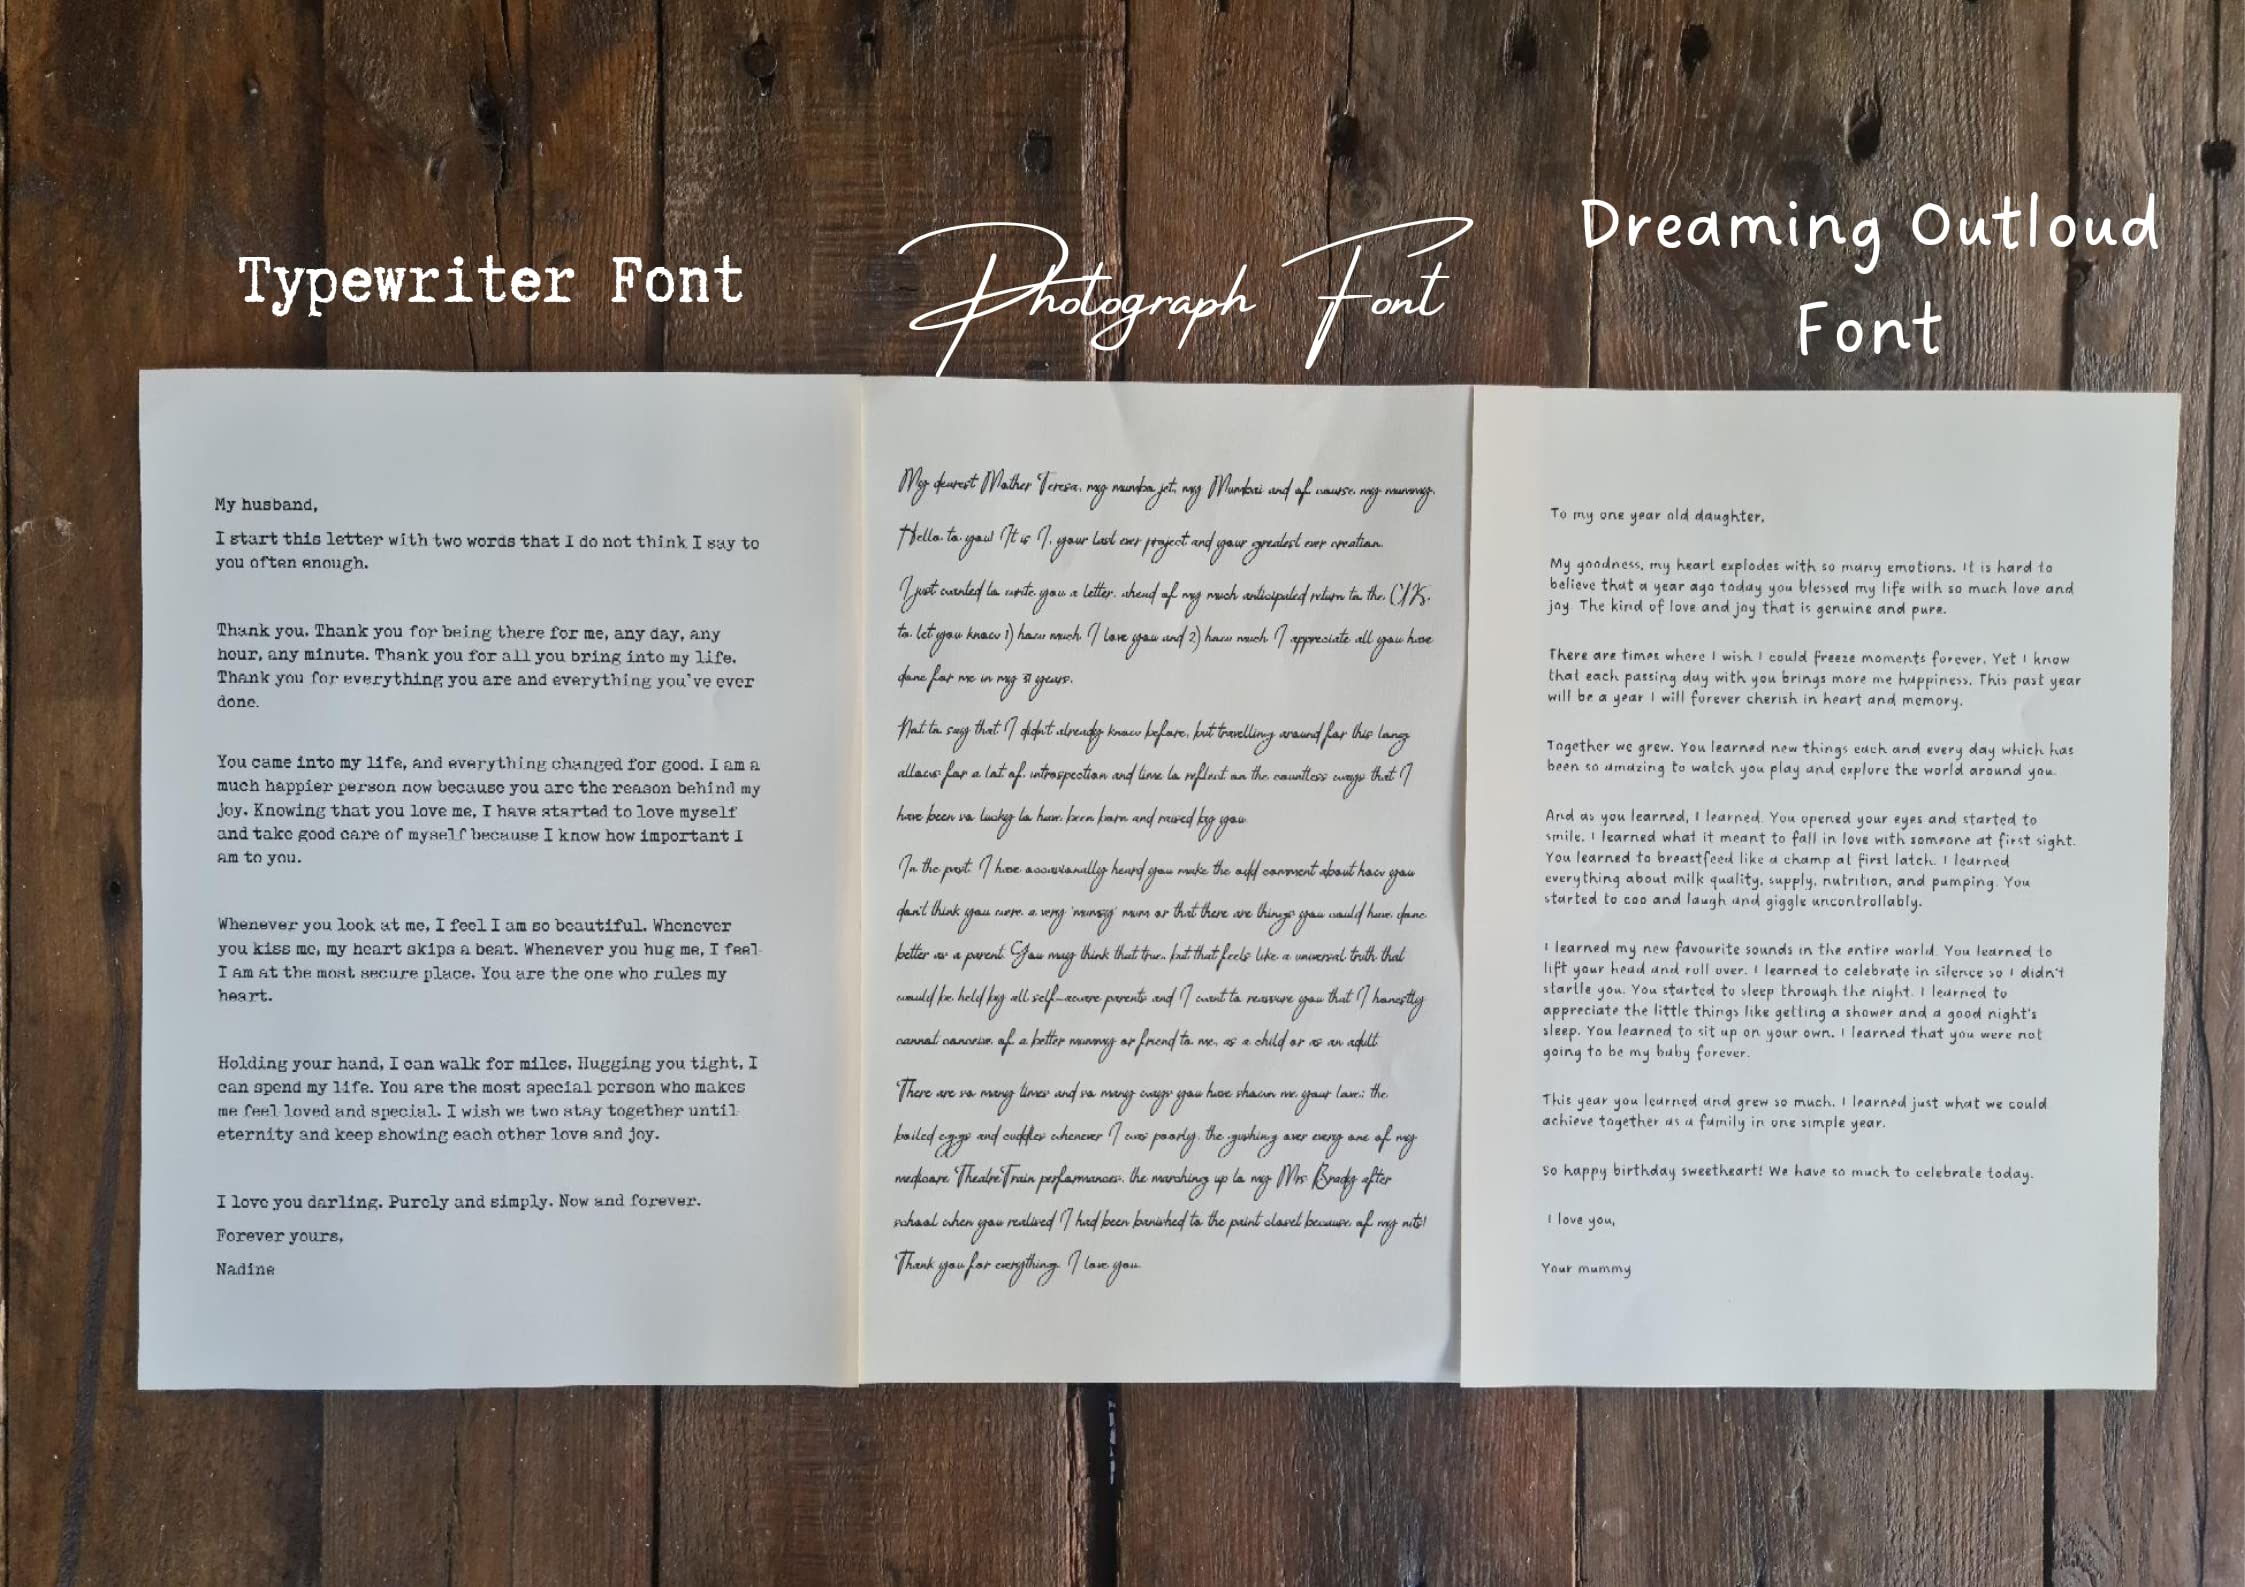 Typewriter Font
My husband,
I start this letter with two words that I do not think I say to
you often enough.
Thank you. Thank you for being there for me, any day, any
hour, any minute. Thank you for all you bring into my life.
Thank you for everything you are and everything you've ever
done.
You came into my life, and everything changed for good. I am a
much happier person now because you are the reason behind my
joy. Knowing that you love me, I have started to love myself
and take good care of myself because I know how important I
am to you.
Whenever you look at me, I feel I am so beautiful. Whenever
you kiss me, my heart skips a beat. Whenever you hug me, I feel
I am at the most secure place. You are the one who rules my
heart.
Holding your hand, I can walk for miles. Hugging you tight, I
can spend my life. You are the most special person who makes
me feel loved and special. I wish we two stay together until
eternity and keep showing each other love and joy.
I love you darling. Purely and simply. Now and forever.
Forever yours,
Nadine
Photograph Font
My dearest Mother Teresa, my mumba jet, my Mumbai and of course, my mummy.
Hello to you! It is I, your last ever project and your greatest ever creation.
I just wanted to write you a letter, ahead of my much anticipated return to the UK,
to let you know 1) how much I love you and 2) how much I appreciate all you have
done for me in my 31 years.
Not to say that I didn't already know before, but travelling around for this long
allows for a lot of introspection and time to reflect on the countless ways that I
have been so lucky to have been born and raised by you.
In the past, I have occasionally heard you make the odd comment about how you
don't think you were a very 'mumsy' mum or that there are things you could have done
better as a parent. You may think that true, but that feels like a universal truth that
would be held by all self-aware parents and I want to reassure you that I honestly
cannot conceive of a better mummy or friend to me, as a child or as an adult.
There are so many times and so many ways you have shown me your love; the
boiled eggs and cuddles whenever I was poorly, the gushing over every one of my
mediocre TheatreTrain performances, the marching up to my Mrs Brady after
school when you realised I had been banished to the paint closet because of my nits!
Thank you for everything. I love you.
Dreaming Outloud
Font
To my one year old daughter,
My goodness, my heart explodes with so many emotions. It is hard to
believe that a year ago today you blessed my life with so much love and
joy. The kind of love and joy that is genuine and pure.
There are times where I wish I could freeze moments forever. Yet I know
that each passing day with you brings more me happiness. This past year
will be a year I will forever cherish in heart and memory.
Together we grew. You learned new things each and every day which has
been so amazing to watch you play and explore the world around you.
And as you learned, I learned. You opened your eyes and started to
smile. I learned what it meant to fall in love with someone at first sight.
You learned to breastfeed like a champ at first latch. I learned
everything about milk quality, supply, nutrition, and pumping. You
started to coo and laugh and giggle uncontrollably.
I learned my new favourite sounds in the entire world. You learned to
lift your head and roll over. I learned to celebrate in silence so I didn't
startle you. You started to sleep through the night. I learned to
appreciate the little things like getting a shower and a good night's
sleep. You learned to sit up on your own. I learned that you were not
going to be my baby forever.
This year you learned and grew so much. I learned just what we could
achieve together as a family in one simple year.
So happy birthday sweetheart! We have so much to celebrate today.
I love you,
Your mummy